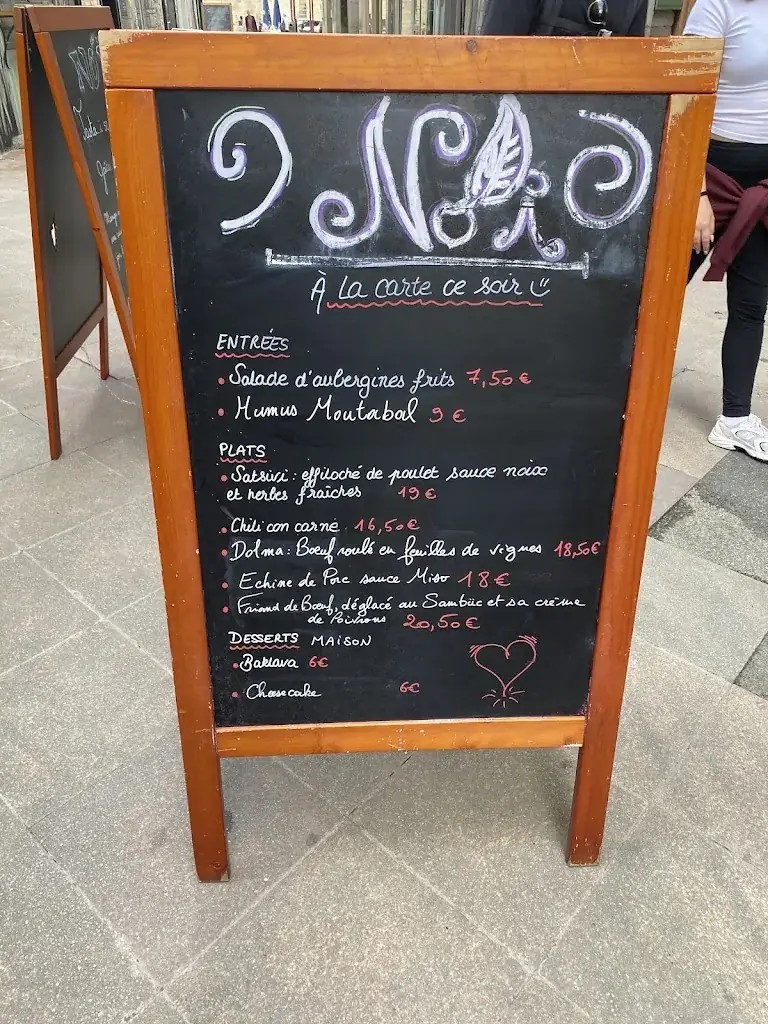 Noï
À La carte ce soir
ENTRÉES
Salade d'aubergines frits 7,50€
Humus Moutabal 9€
PLATS
Satsivi : effiloché de poulet sauce noix
et herbes fraîches 19€
Chili con carne 16,50€
Dolma : Bœuf roulé en feuilles de vignes 18,50€
Echine de Porc sauce Miso 18€
Friand de Bœuf, déglacé au Sambuc et sa crème
de Poivrons 20,50€
DESSERTS MAISON
Baklava 6€
Cheesecake 6€